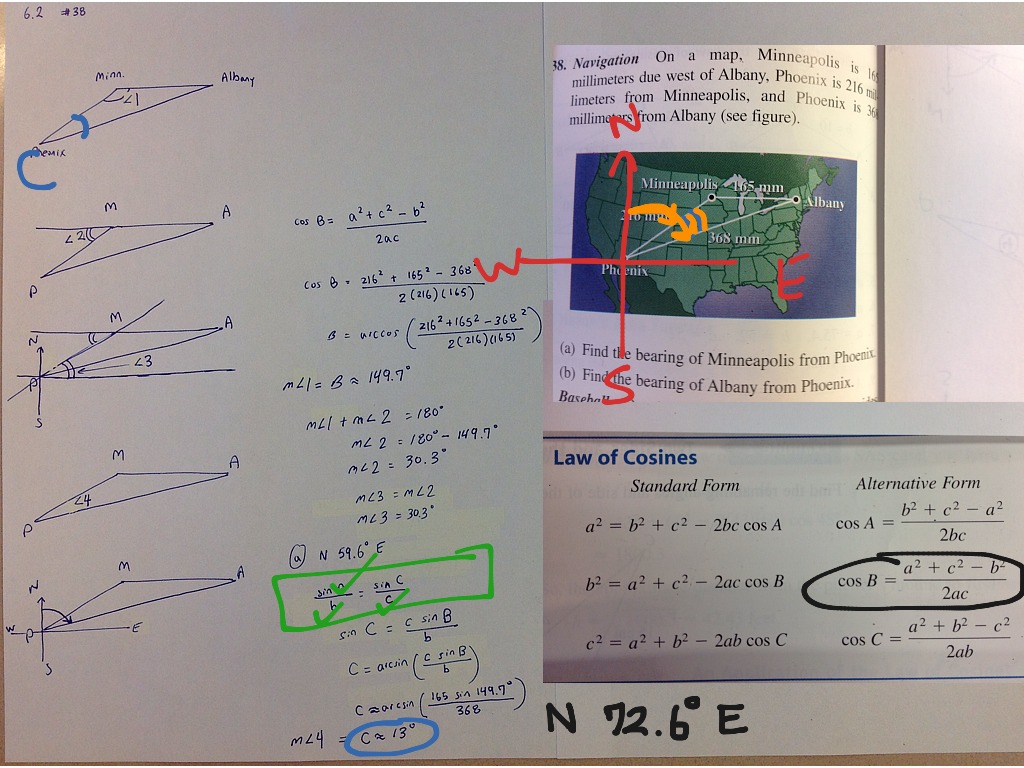 6.2 #38
Minn.
Albany
∠1
Phoenix
C
M
A
∠2
P
M
A
N
∠3
P
S
M
A
∠4
P
N
M
A
W P E
S
cos B = a² + c² − b² / 2ac
cos B = 216² + 165² − 368² / 2(216)(165)
B = arccos (216² + 165² − 368² / 2(216)(165))
m∠1 = B ≈ 149.7°
m∠1 + m∠2 = 180°
m∠2 = 180° − 149.7°
m∠2 = 30.3°
m∠3 = m∠2
m∠3 = 30.3°
(a) N 59.6° E
sin / b = sin C / c
sin C = c sin B / b
C = arcsin (c sin B / b)
C ≈ arcsin (165 sin 149.7° / 368)
m∠4 = C ≈ 13°
38. Navigation On a map, Minneapolis is 165
millimeters due west of Albany, Phoenix is 216 mil-
limeters from Minneapolis, and Phoenix is 368
millimeters from Albany (see figure).
N
Minneapolis 165 mm
Albany
216 mm
368 mm
W
Phoenix
E
(a) Find the bearing of Minneapolis from Phoenix.
(b) Find the bearing of Albany from Phoenix.
S
Baseball
Law of Cosines
Standard Form Alternative Form
a² = b² + c² − 2bc cos A cos A = b² + c² − a² / 2bc
b² = a² + c² − 2ac cos B cos B = a² + c² − b² / 2ac
c² = a² + b² − 2ab cos C cos C = a² + b² − c² / 2ab
N 72.6° E